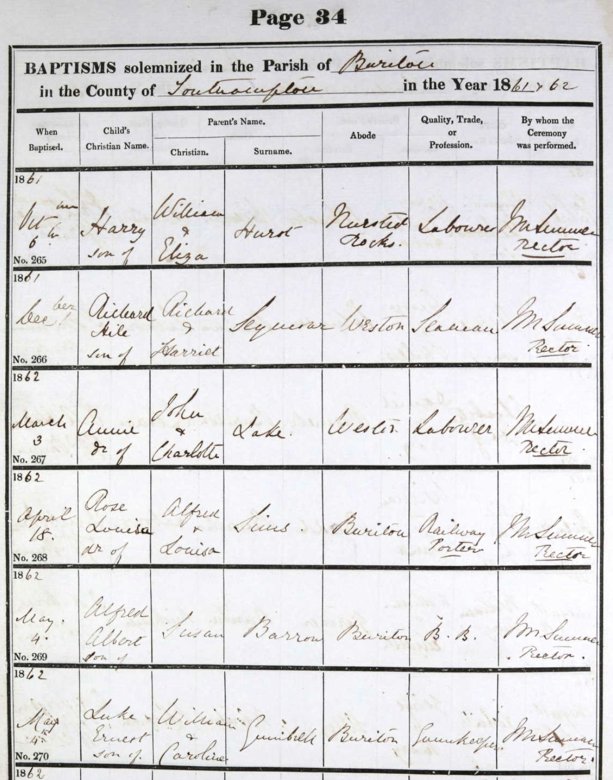 Page 34
BAPTISMS solemnized in the Parish of Buriton
in the County of Southampton in the Year 1861 & 62
When Baptised. Child's Christian Name. Parent's Name. Christian. Surname. Abode Quality, Trade, or Profession. By whom the Ceremony was performed.
1861
6 Harry son of William & Eliza Hurst Nursted Rocks. Labourer Rector
No. 265
1861
Decber Richard son of Richard & Harriet Seymour Weston Seaman J M Sumner Rector
No. 266
1862
March 3 Annie dr of John & Charlotte Lake. Weston Labourer J M Sumner Rector
No. 267
1862
April 18. Rose Louisa dr of Alfred & Louisa Sims Buriton Railway Porter J M Sumner Rector
No. 268
1862
May. 4. Alfred Albert son of Susan Barrow Buriton B. B. J M Sumner Rector.
No. 269
1862
May 4 Luke Ernest son of William & Caroline Buriton J M Sumner Rector.
No. 270
1862